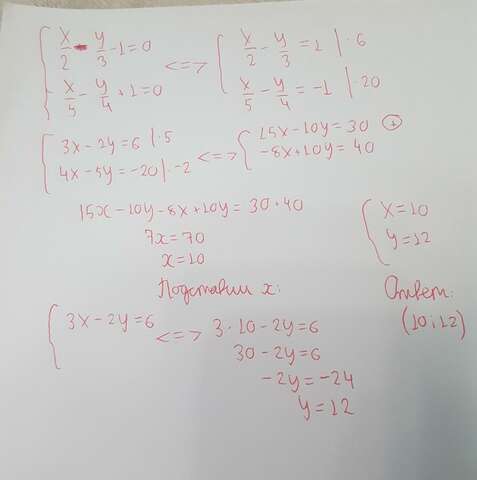 x/2 - y/3 - 1 = 0 <=> x/2 - y/3 = 1 | · 6
x/5 - y/4 + 1 = 0 x/5 - y/4 = -1 | · 20
3x - 2y = 6 | · 5 <=> 15x - 10y = 30 (+)
4x - 5y = -20 | · -2 -8x + 10y = 40
15x - 10y - 8x + 10y = 30 + 40
7x = 70
x = 10
x = 10
y = 12
Подставим x:
Ответ:
(10; 12)
3x - 2y = 6 <=> 3 · 10 - 2y = 6
30 - 2y = 6
-2y = -24
y = 12